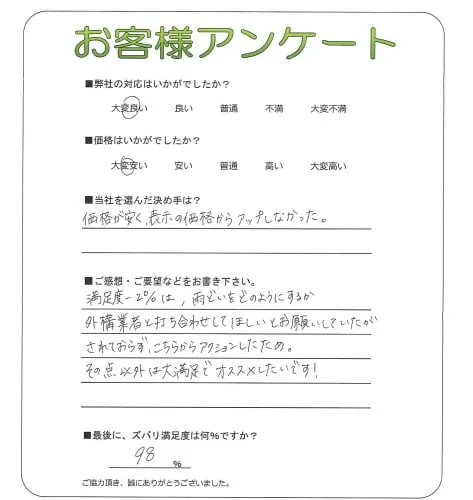 お客様アンケート
■弊社の対応はいかがでしたか？
大変良い 良い 普通 不満 大変不満
■価格はいかがでしたか？
大変安い 安い 普通 高い 大変高い
■当社を選んだ決め手は？
価格が安く、表示の価格からアップしなかった。
■ご感想・ご要望などをお書き下さい。
満足度－2%は、雨どいをどのようにするか
外構業者と打ち合わせしてほしいとお願いしていたが
されておらず、こちらからアクションしたため。
その点以外は大満足でオススメしたいです！
■最後に、ズバリ満足度は何%ですか？
98 %
ご協力頂き、誠にありがとうございました。